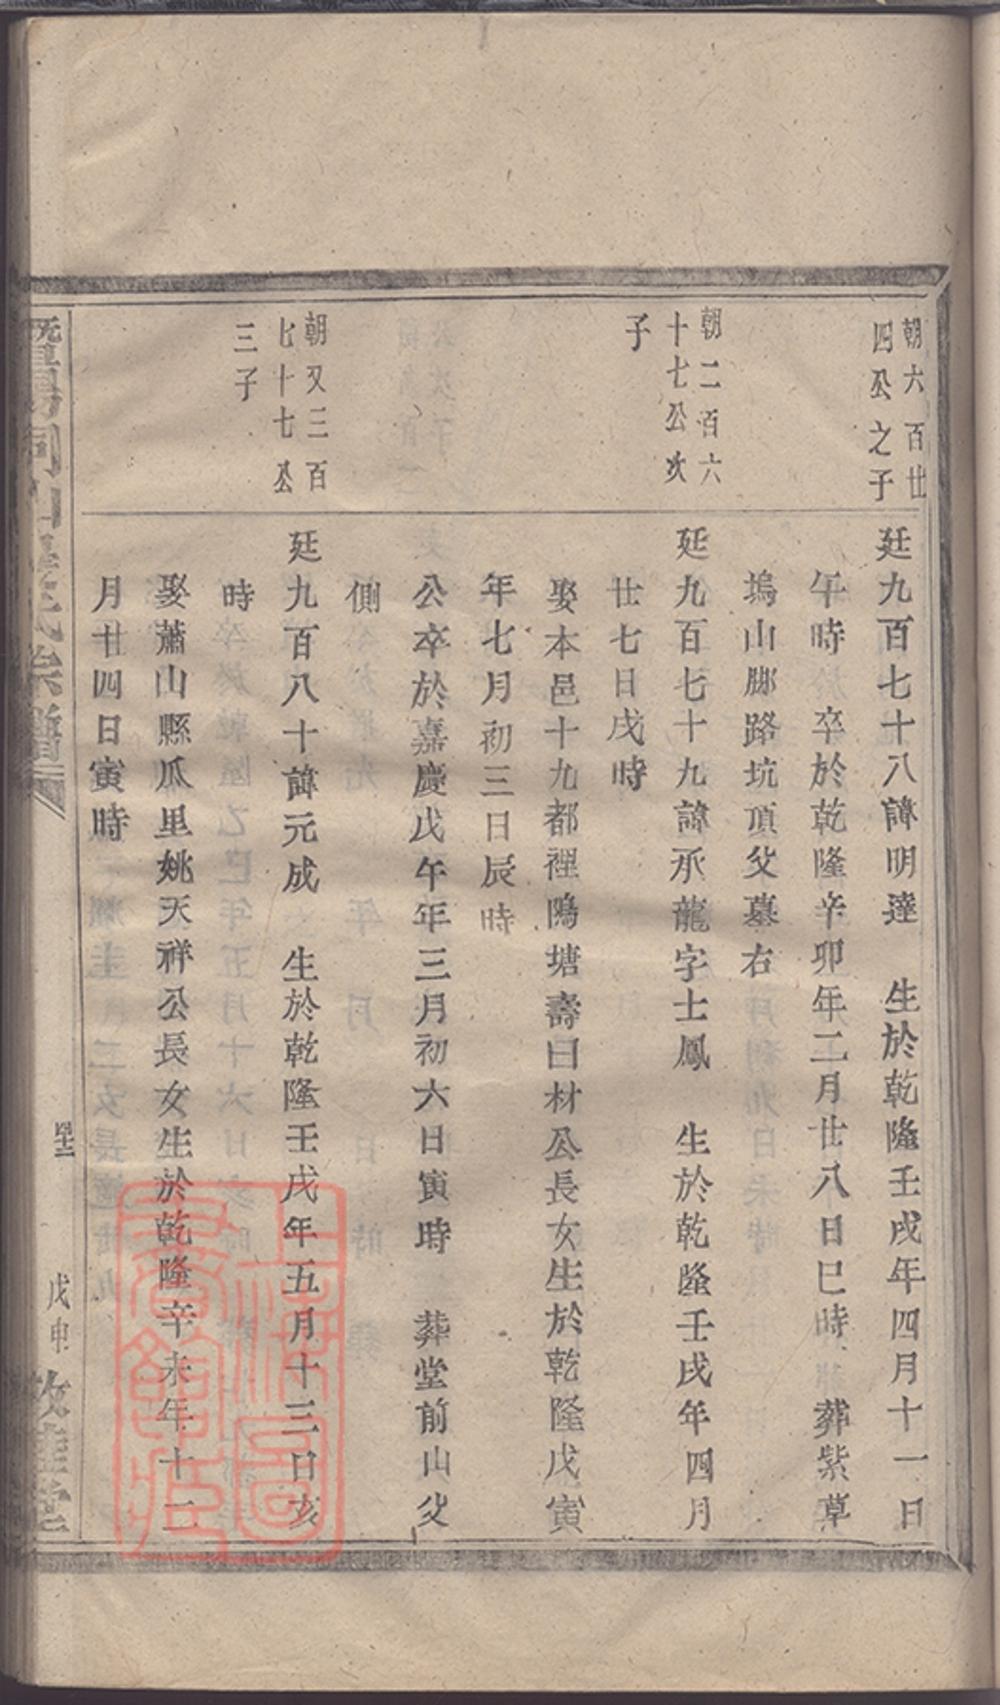 朝六百廿
四公之子
廷九百七十八諱明達 生於乾隆壬戌年四月十一日
午時 卒於乾隆辛卯年二月廿八日巳時 葬紫草
塢山脚路坑頂父墓右
朝二百六
十七公次
子
廷九百七十九諱承龍字士鳳 生於乾隆壬戌年四月
廿七日戌時
娶本邑十九都裡鴈塘壽曰材公長女生於乾隆戊寅
年七月初三日辰時
公卒於嘉慶戊午年三月初六日寅時 葬堂前山父
側
朝又三百
七十七公
三子
廷九百八十諱元成 生於乾隆壬戌年五月十三日亥
時
娶蕭山縣瓜里姚天祥公長女生於乾隆辛未年十二
月廿四日寅時
暨陽同山邊氏宗譜
戊申
上海圖書館藏